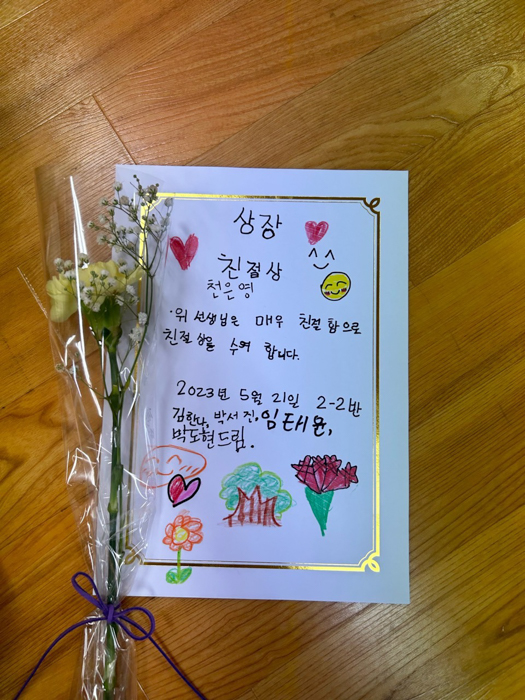 상장
친절상
천은영
·위 선생님은 매우 친절 함으로
친절 상을 수여 합니다.
2023년 5월 21일 2-2반
김한나, 박서진, 임태윤,
박도현드림.